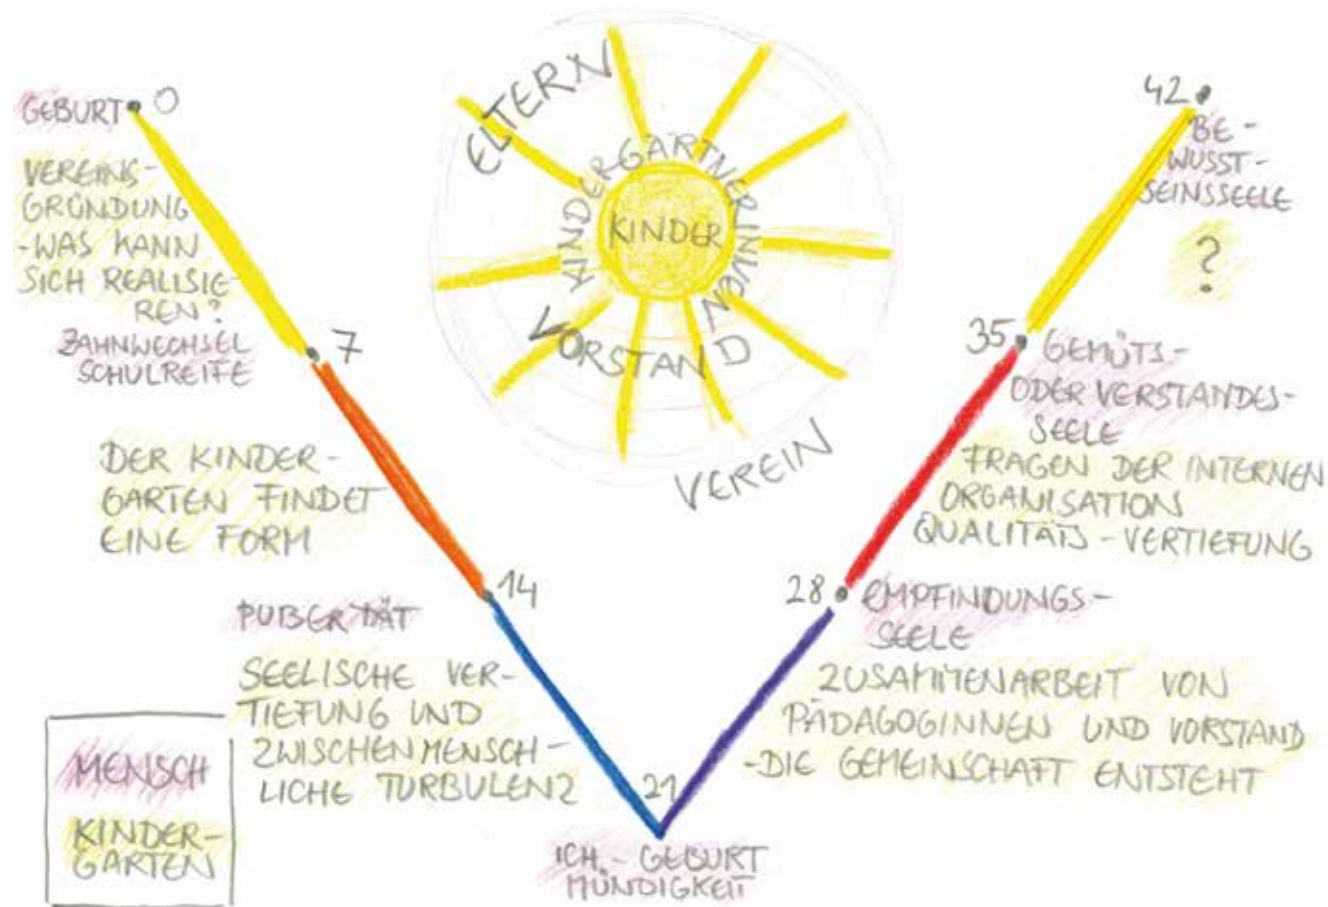 GEBURT 0
VEREINS-
GRÜNDUNG
-WAS KANN
SICH REALISIE-
REN?
ZAHNWECHSEL
SCHULREIFE
7
DER KINDER-
GARTEN FINDET
EINE FORM
14
PUBERTÄT
SEELISCHE VER-
TIEFUNG UND
ZWISCHENMENSCH-
LICHE TURBULENZ
21
ICH - GEBURT
MÜNDIGKEIT
ELTERN
KINDERGÄRTNERINNEN
KINDER
VORSTAND
VEREIN
42
BE-
WUSST-
SEINSSEELE
?
35
GEMÜTS-
ODER VERSTANDES-
SEELE
FRAGEN DER INTERNEN
ORGANISATION
QUALITÄTS-VERTIEFUNG
28
EMPFINDUNGS-
SEELE
ZUSAMMENARBEIT VON
PÄDAGOGINNEN UND VORSTAND
-DIE GEMEINSCHAFT ENTSTEHT
MENSCH
KINDER-
GARTEN